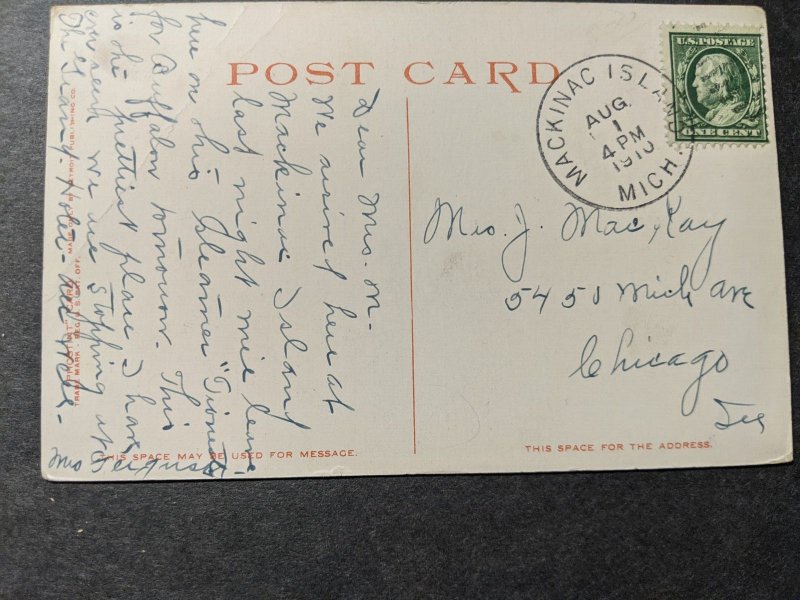 POST CARD
U.S. POSTAGE
ONE CENT
MACKINAC ISLAND
AUG.
1
4 PM
1910
MICH.
Dear Mrs. M.
We arived here at
Mackinac Island
last night will leave
here on the steamer "Tionesta
for Buffalo tomorrow. This
is the prettiest place I have
ever seen we are stopping at
The Grand. Hotel
Mrs Ferguson
Mrs. J. MacKay
5451 Mich Ave
Chicago
Ill
"PHOSTINT" CARD
TRADE MARK REG. U.S. PAT. OFF. MADE ONLY BY DETROIT PUBLISHING CO.
THIS SPACE MAY BE USED FOR MESSAGE.
THIS SPACE FOR THE ADDRESS.